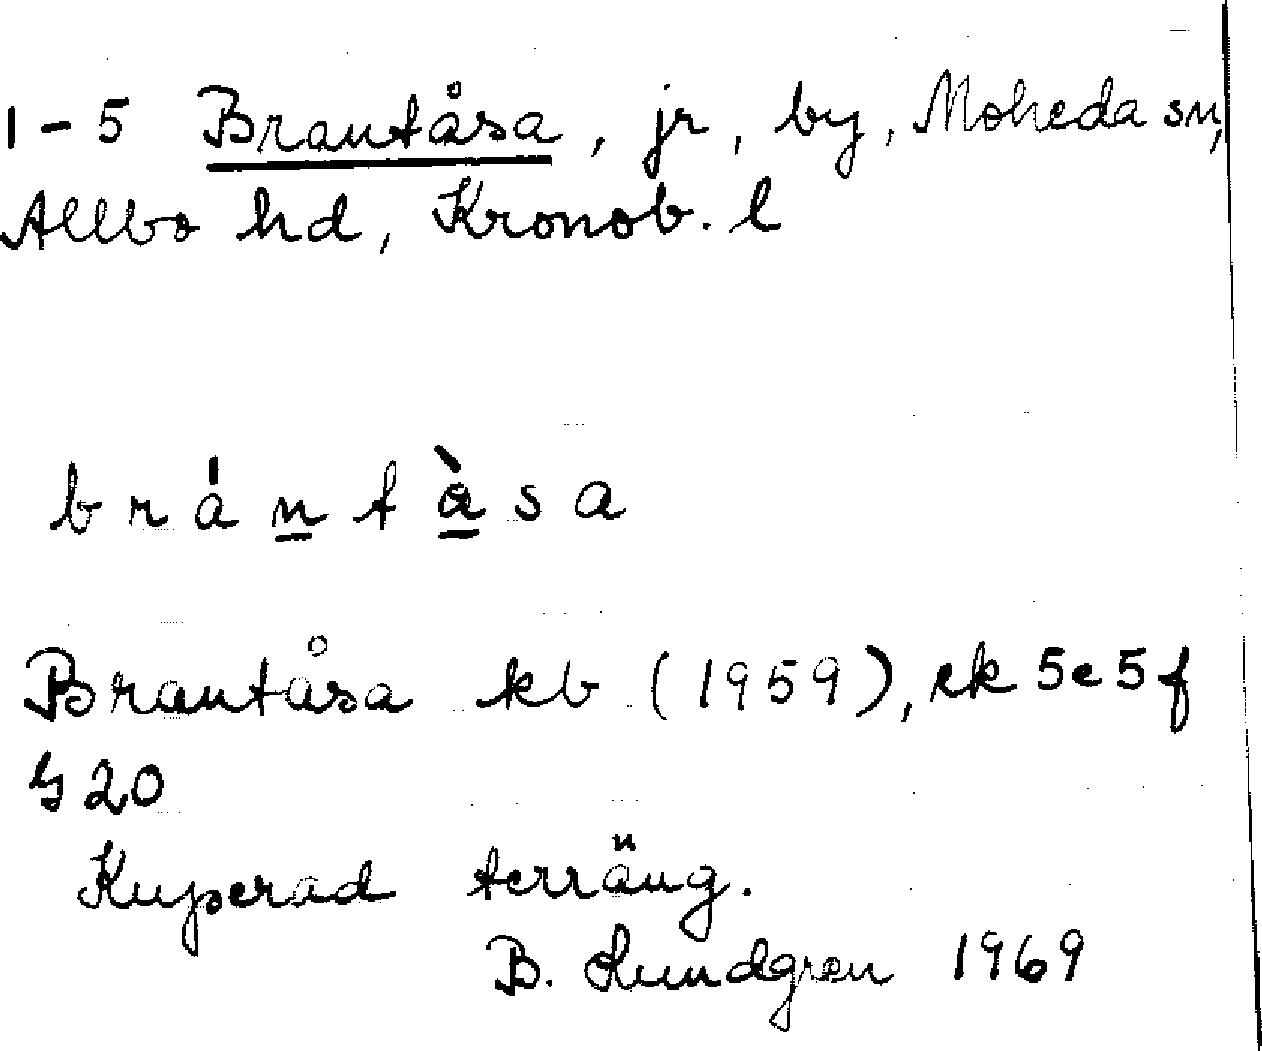 1-5 Brantåsa, jr, by, Moheda sn,
Allbo hd, Kronob. l
brántàsa
Brantåsa kb (1959), ek 5e5f
420
Kuperad terräng.
B. Lundgren 1969